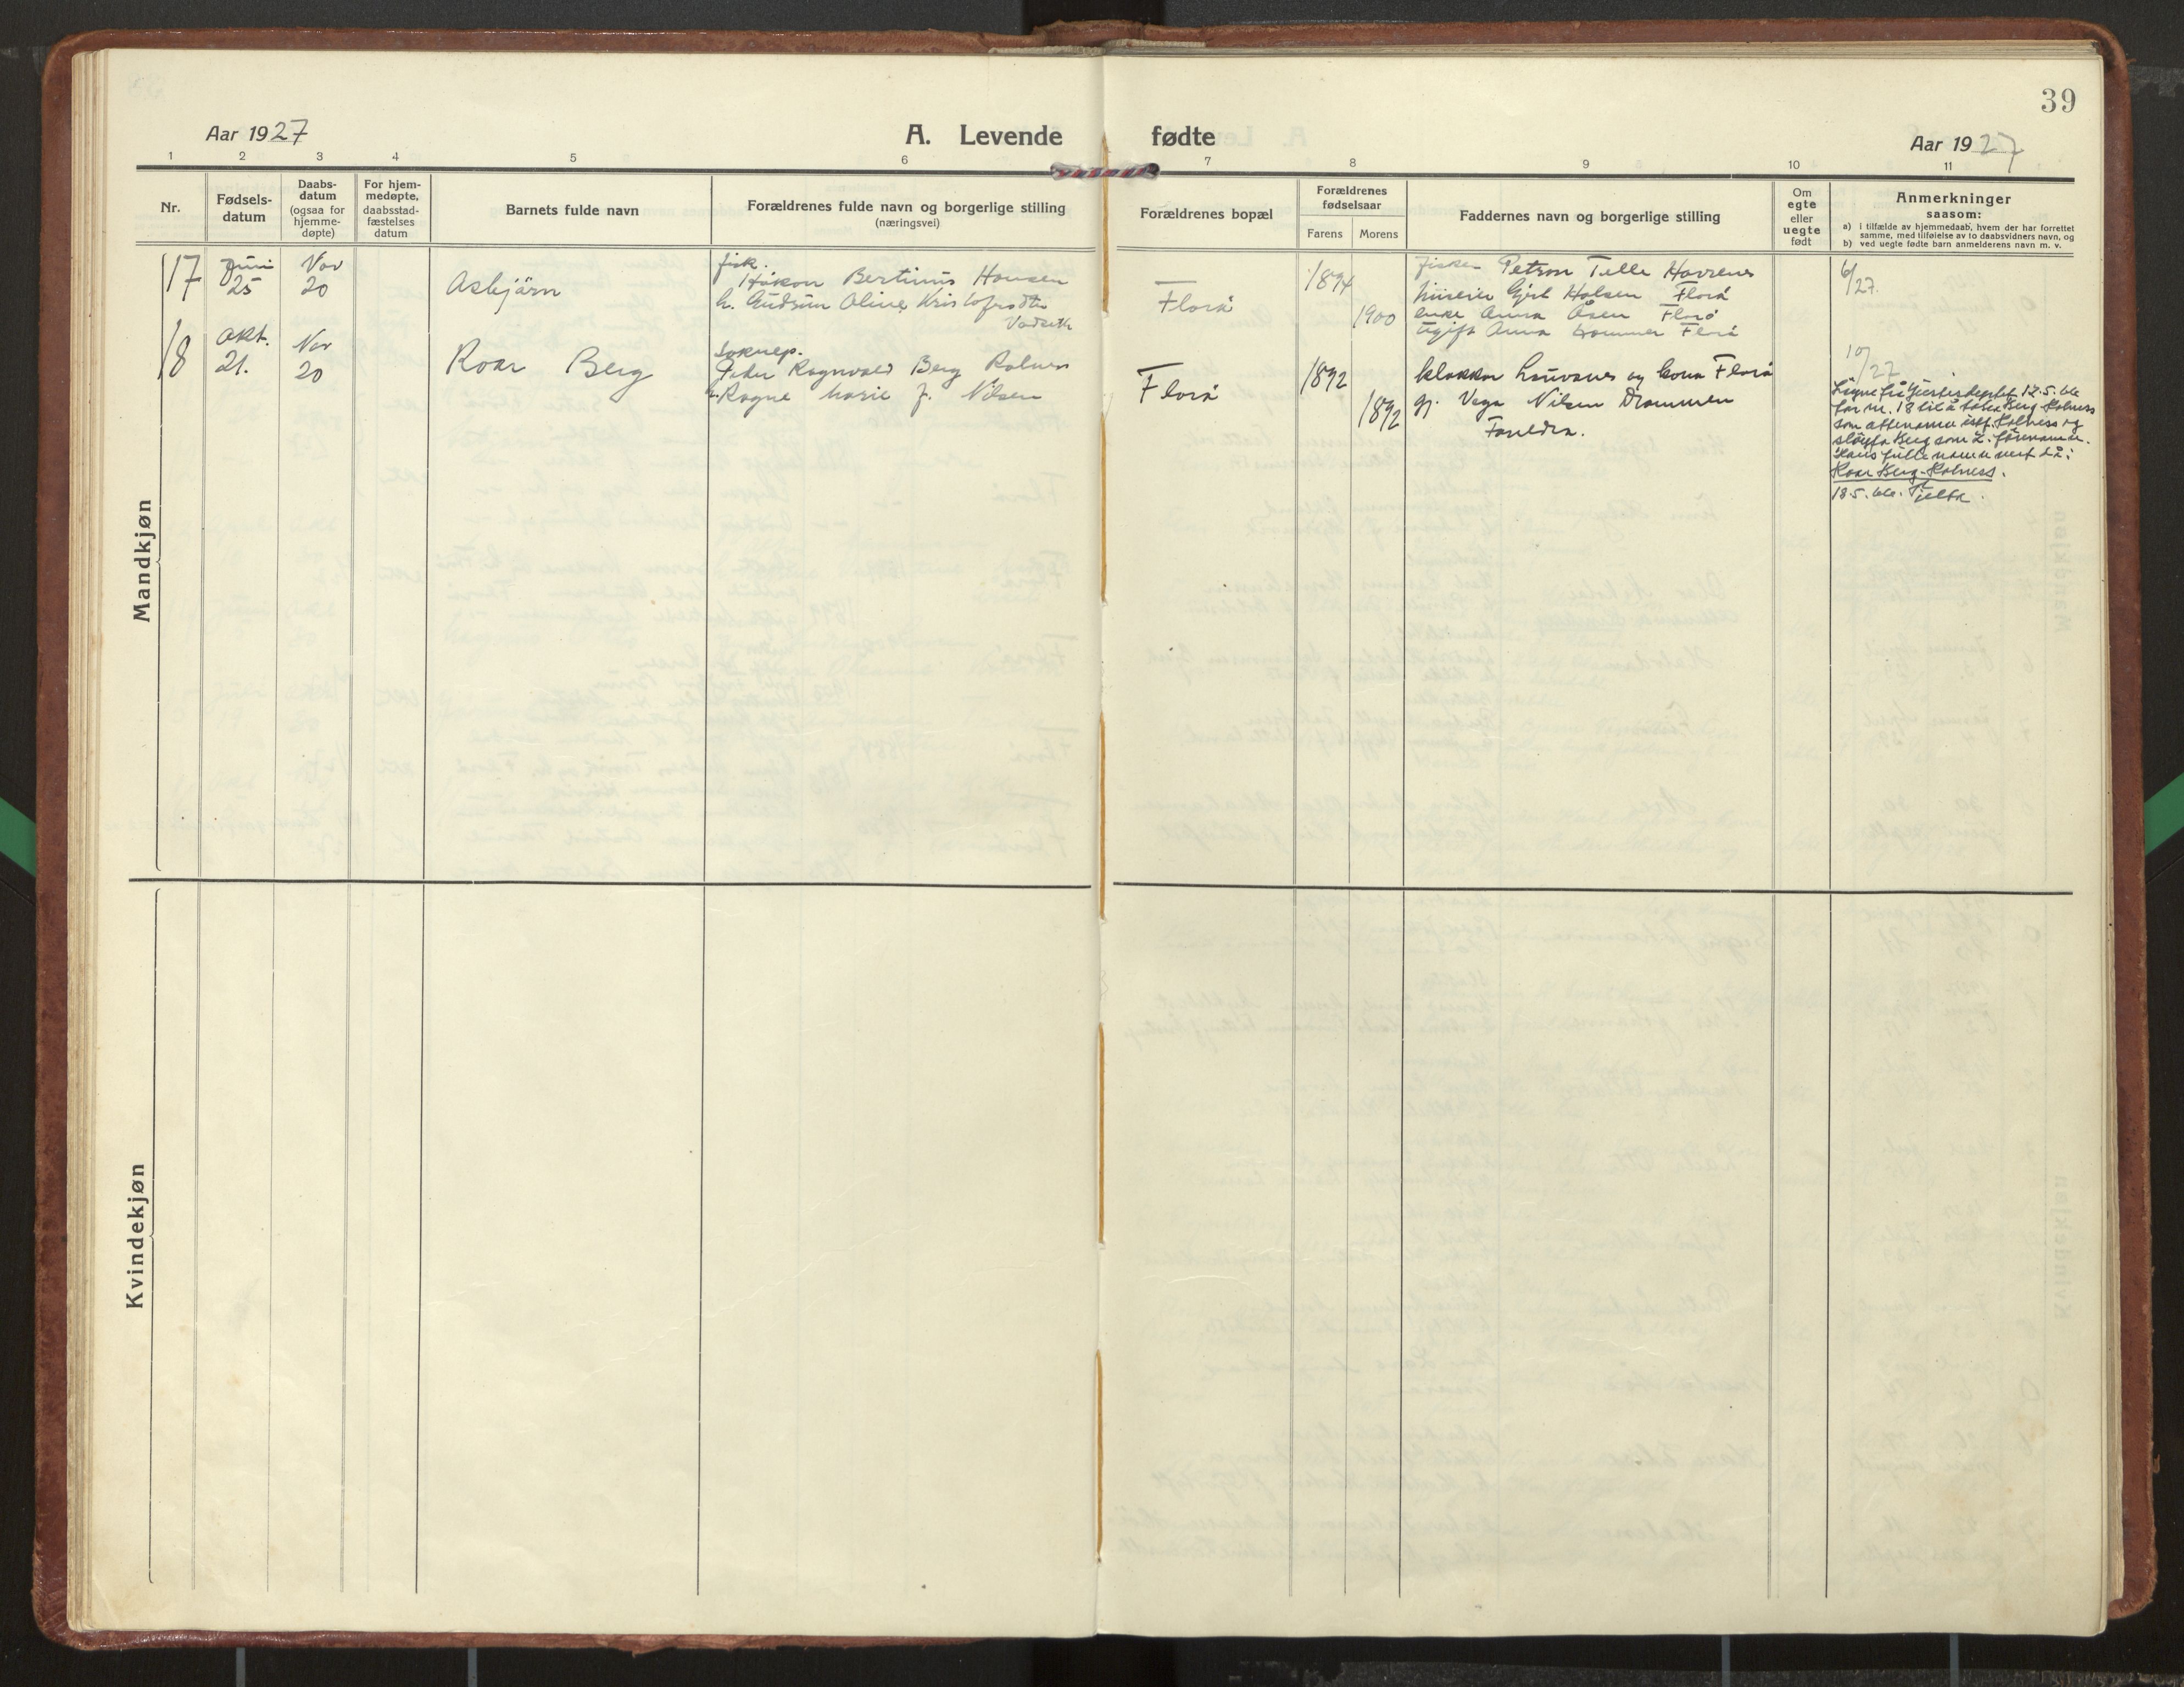 39
Aar 1927
A. Levende fødte
Aar 1927
1 2 3 4 5 6 7 8 9 10 11
Nr.
Fødsels-
datum
Daabs-
datum
(ogsaa for
hjemme-
døpte)
For hjem-
medøpte,
daabsstad-
fæstelses
datum
Barnets fulde navn
Forældrenes fulde navn og borgerlige stilling
(næringsvei)
Forældrenes bopæl
Forældrenes
fødselsaar
Farens Morens
Faddernes navn og borgerlige stilling
Om
egte
eller
uegte
født
Anmerkninger
saasom:
a) i tilfælde av hjemmedaab, hvem der har forrettet
samme, med tilføielse av to daabsvidners navn, og
b) ved uegte fødte barn anmelderens navn m. v.
Mandkjøn
17
Juni
25
Nov
20
Asbjörn
fisk.
Håkon Bertinus Hansen
h. Gudrun Oline Kristofersdtr
Vadseth
Florö
1894
1900
fisker Petson Telle Havrenes
huseier Gjert Holsen Florö
enke Anna Åsen Florö
ugift Anna Hammer Florö
6/27.
18
Okt.
21.
Nov
20
Roar Berg
soknep.
Peder Ragnvald Berg Rolness
h. Ragne Marie f. Nilsen
Florö
1892
1892
klokker Lauvanes og kona Florö
gj. Vega Nilsen Drammen
Foreldra.
10/27
Løyve frå Justisdeptet 12.5.66
for nr. 18 til å taka Berg-Rolness
som attenamn istf. Rolness og
sløyfa Berg som 2. förenamn.
Hans fulle namn vert då:
Roar Berg-Rolness.
18.5.66.
Kvindekjøn